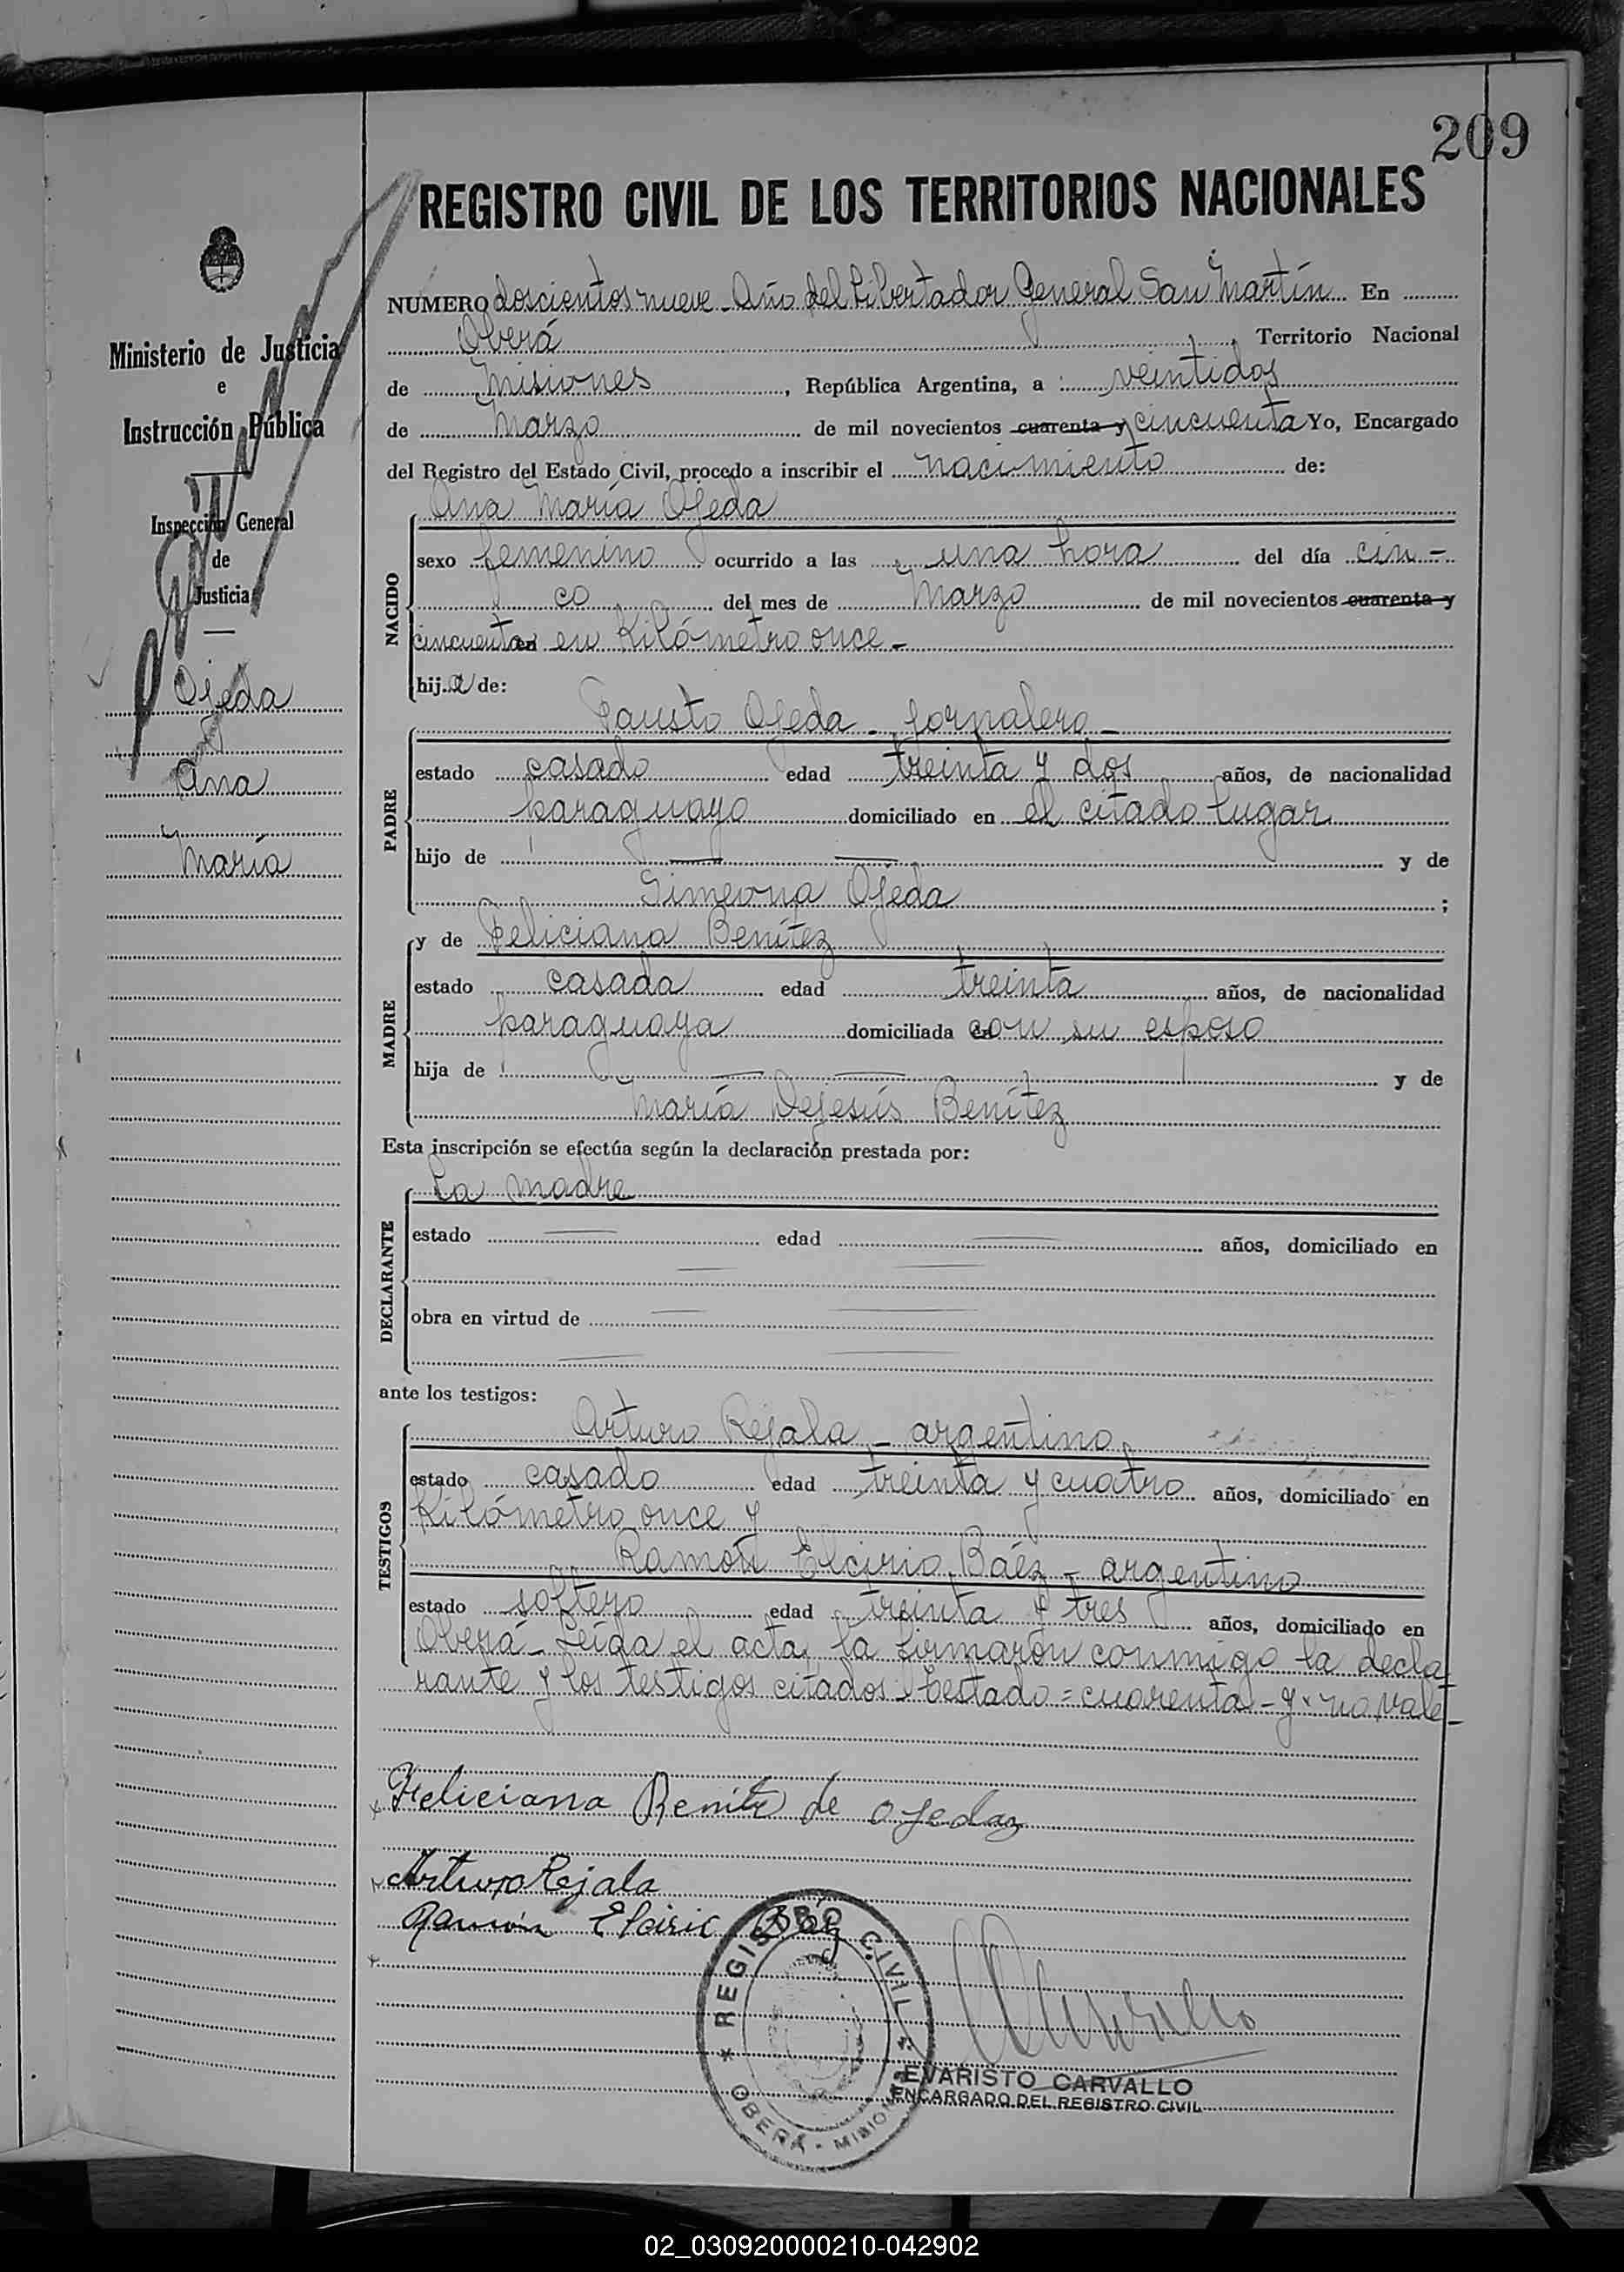 209
REGISTRO CIVIL DE LOS TERRITORIOS NACIONALES
Ministerio de Justicia
e
Instrucción Pública
Inspección General
de
Justicia
Ojeda
Ana
María
NUMERO doscientos nueve - Año del Libertador General San Martín En
Oberá, Territorio Nacional
de Misiones, República Argentina, a veintidos
de Marzo de mil novecientos cuarenta y cincuenta Yo, Encargado
del Registro del Estado Civil, procedo a inscribir el nacimiento de:
NACIDO
Ana María Ojeda
sexo femenino ocurrido a las una hora del día cin-
co del mes de Marzo de mil novecientos cuarenta y
cincuenta en en Kilómetro once -
hija de:
PADRE
Fausto Ojeda - jornalero -
estado casado edad treinta y dos años, de nacionalidad
paraguayo domiciliado en el citado lugar
hijo de — — y de
Simeona Ojeda ;
MADRE
y de Feliciana Benítez
estado casada edad treinta años, de nacionalidad
paraguaya domiciliada en con su esposo
hija de — — y de
María Dejesús Benítez
Esta inscripción se efectúa según la declaración prestada por:
DECLARANTE
La madre
estado — edad — años, domiciliado en
— —
obra en virtud de — —
— —
ante los testigos:
TESTIGOS
Arturo Rejala - argentino
estado casado edad treinta y cuatro años, domiciliado en
Kilómetro once y
Ramón Elcirio Báez - argentino
estado soltero edad treinta y tres años, domiciliado en
Oberá - Leída el acta, la firmaron conmigo la decla
rante y los testigos citados. Testado = cuarenta - y = no vale -
Feliciana Benitez de Ojeda
Arturo Rejala
Ramón Elcirio Báez
REGISTRO CIVIL
OBERÁ - MISIONES
EVARISTO CARVALLO
ENCARGADO DEL REGISTRO CIVIL
02_030920000210-042902